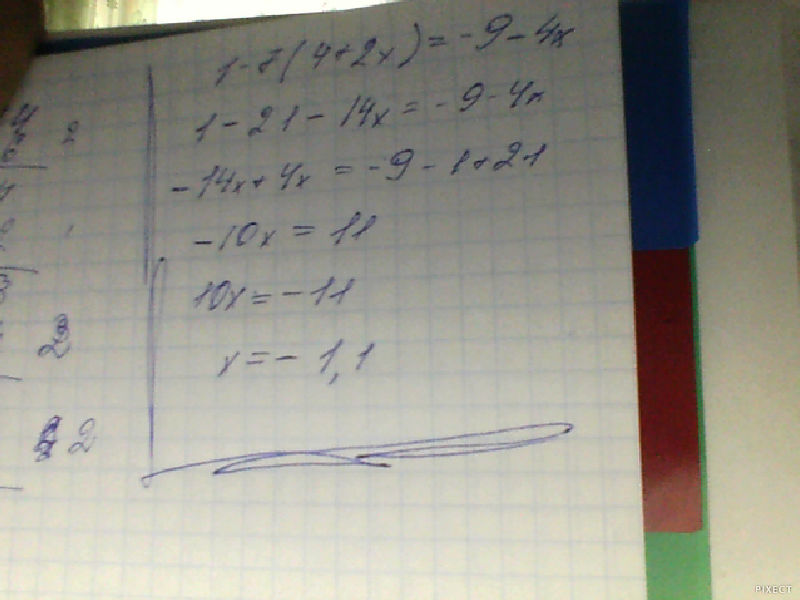 1-7(4+2x)=-9-4x
1-21-14x=-9-4x
-14x+4x=-9-1+21
-10x=11
10x=-11
x=-1,1
2
PIXECT